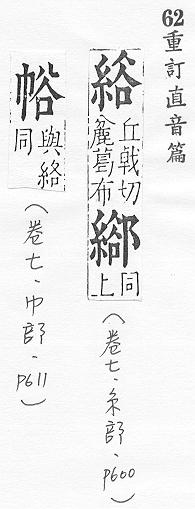 62重訂直音篇
綌
丘戟切
麁葛布
上同
(卷七‧糸部‧p600)
與綌
同
(卷七‧巾部‧p611)